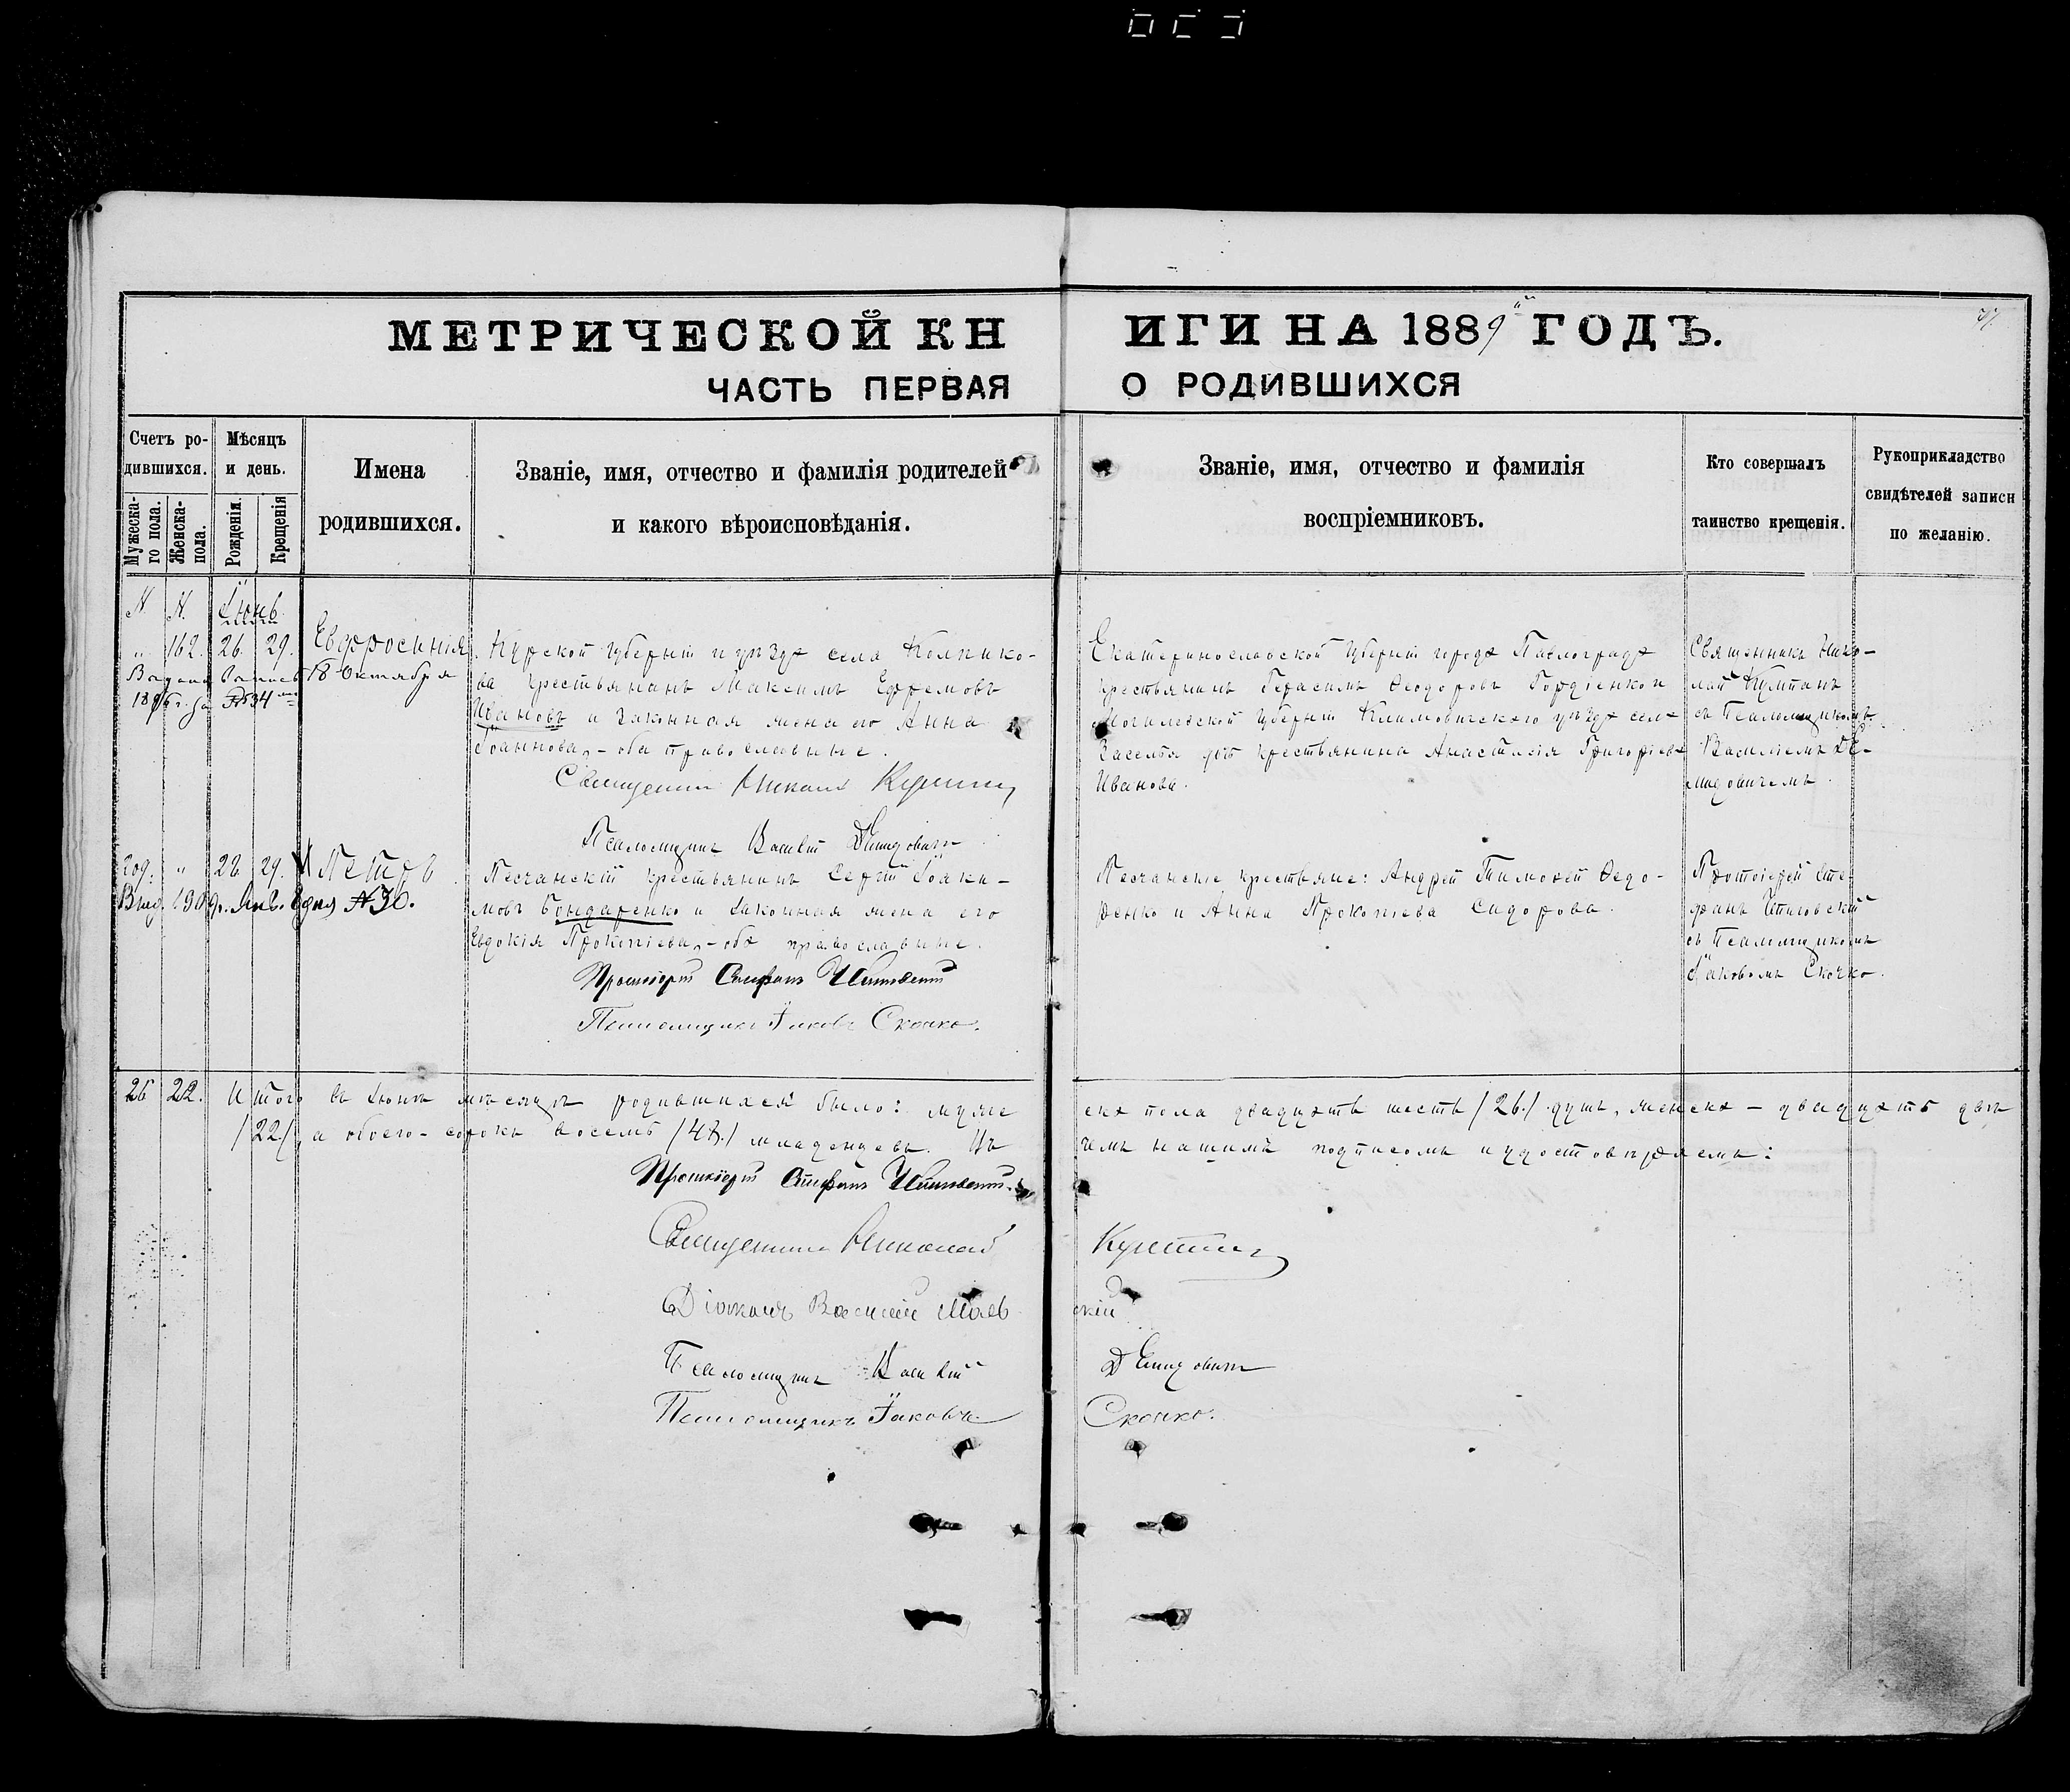 МЕТРИЧЕСКОЙ КНИГИ НА 1889й ГОДЪ.
ЧАСТЬ ПЕРВАЯ О РОДИВШИХСЯ
Счетъ родившихся.
Мужескаго пола.
Женска- пола.
Мѣсяцъ и день.
Рожденія.
Крещенія
Имена
родившихся.
Званіе, имя, отчество и фамилія родителей
и какого вѣроисповѣданія.
Званіе, имя, отчество и фамилія
воспріемниковъ.
Кто совершалъ
таинство крещенія.
Рукоприкладство
свидѣтелей записи
по желанію.
№ №. Іюнь
" 162. 26. 29. Евфросинія.
18 Октября
Курской губерніи и уѣзда села
крестьянинъ Максимъ Ефремовъ
Ивановъ и законная жена его Анна
Іоаннова, - оба православные.
Священникъ Николай
Псаломщикъ Василій Демидовичъ
Екатеринославской губерніи города Павлограда
крестьянинъ Герасимъ Ѳеодоровъ Гордіенко и
Могилевской губерніи Климовичскаго уѣзда села
крестьянина Анастасія Григоріева
Иванова.
Священникъ Нико-
лай
съ Псаломщикомъ
Василіемъ Де-
мидовичемъ.
209. " 22. 29. Петръ
№ 30.
Песчанскій крестьянинъ Сергій Іоаки-
мовъ Бондаренко и законная жена его
Евдокія Прокопіева, - оба православные.
Протоіерей Стефанъ
Псаломщикъ Іаковъ Скочко.
Песчанскіе крестьяне: Андрей Тимоѳей Ѳедо-
ренко и Анна Прокопіева Сидорова.
Протоіерей Сте-
фанъ
съ Псаломщикомъ
Іаковомъ Скочко.
26 22. Итого въ Іюнѣ мѣсяцѣ родившихся было: муже
ска пола двадцать шесть /26./ душъ, женска - двадцать двѣ
/22./, а обоего - сорокъ восемь /48./ младенцевъ. Въ
чемъ нашимъ подписомъ и удостовѣряемъ:
Протоіерей Стефанъ
Священникъ Николай
Діаконъ Василій Маевскій
Псаломщикъ Василій Демидовичъ
Псаломщикъ Іаковъ Скочко.